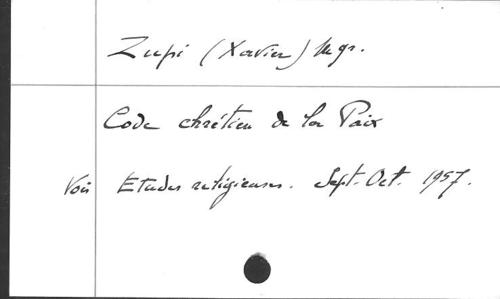 Zupi (Xavier) Mgr.
Code chrétien de la Paix
Voir Etudes religieuses. Sept.-Oct. 1957.